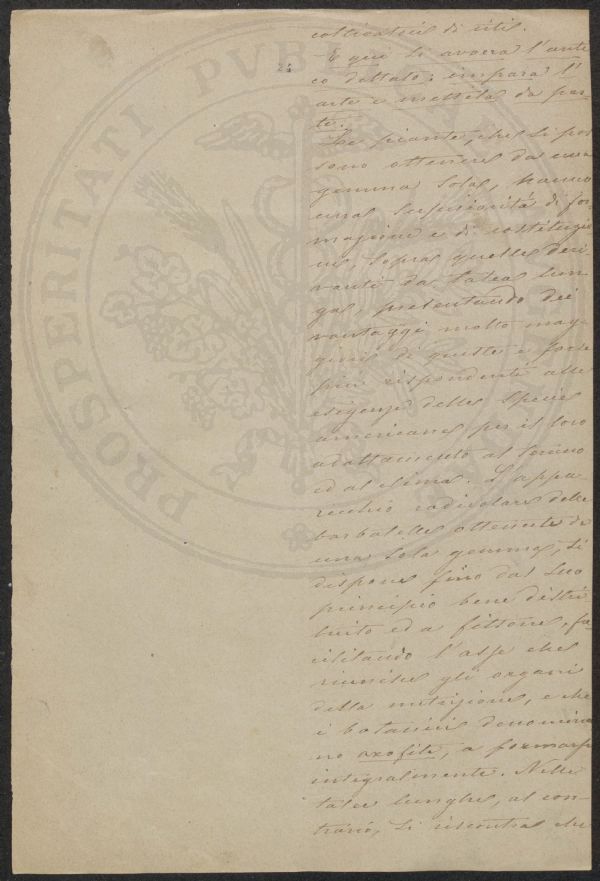 coltivatori di viti.
E qui si avvera l'anti
co dettato: impara l'
arte e mettila da par
te.
Le piante, che si pos
sono ottenere da una
gemma sola, hanno
una superiorità di for
mazione e di costituzio
ne, sopra quelle deri
vanti da talea lun
ga, presentando dei
vantaggi molto mag
giori di queste e forse
più rispondenti alle
esigenze delle specie
americane per il loro
adattamento al terreno
ed al clima. L'appa
recchio radicolare delle
barbatelle ottenute da
una sola gemma, si
dispone fino dal suo
principio bene distri
buito ed a fittone, fa
cilitando l'asse che
riunisce gli organi
della nutrizione, e che
i botanici denomina
no axofite, a formarsi
integralmente. Nelle
talee lunghe, al con
trario, si riscontra che
PROSPERITATI PVB